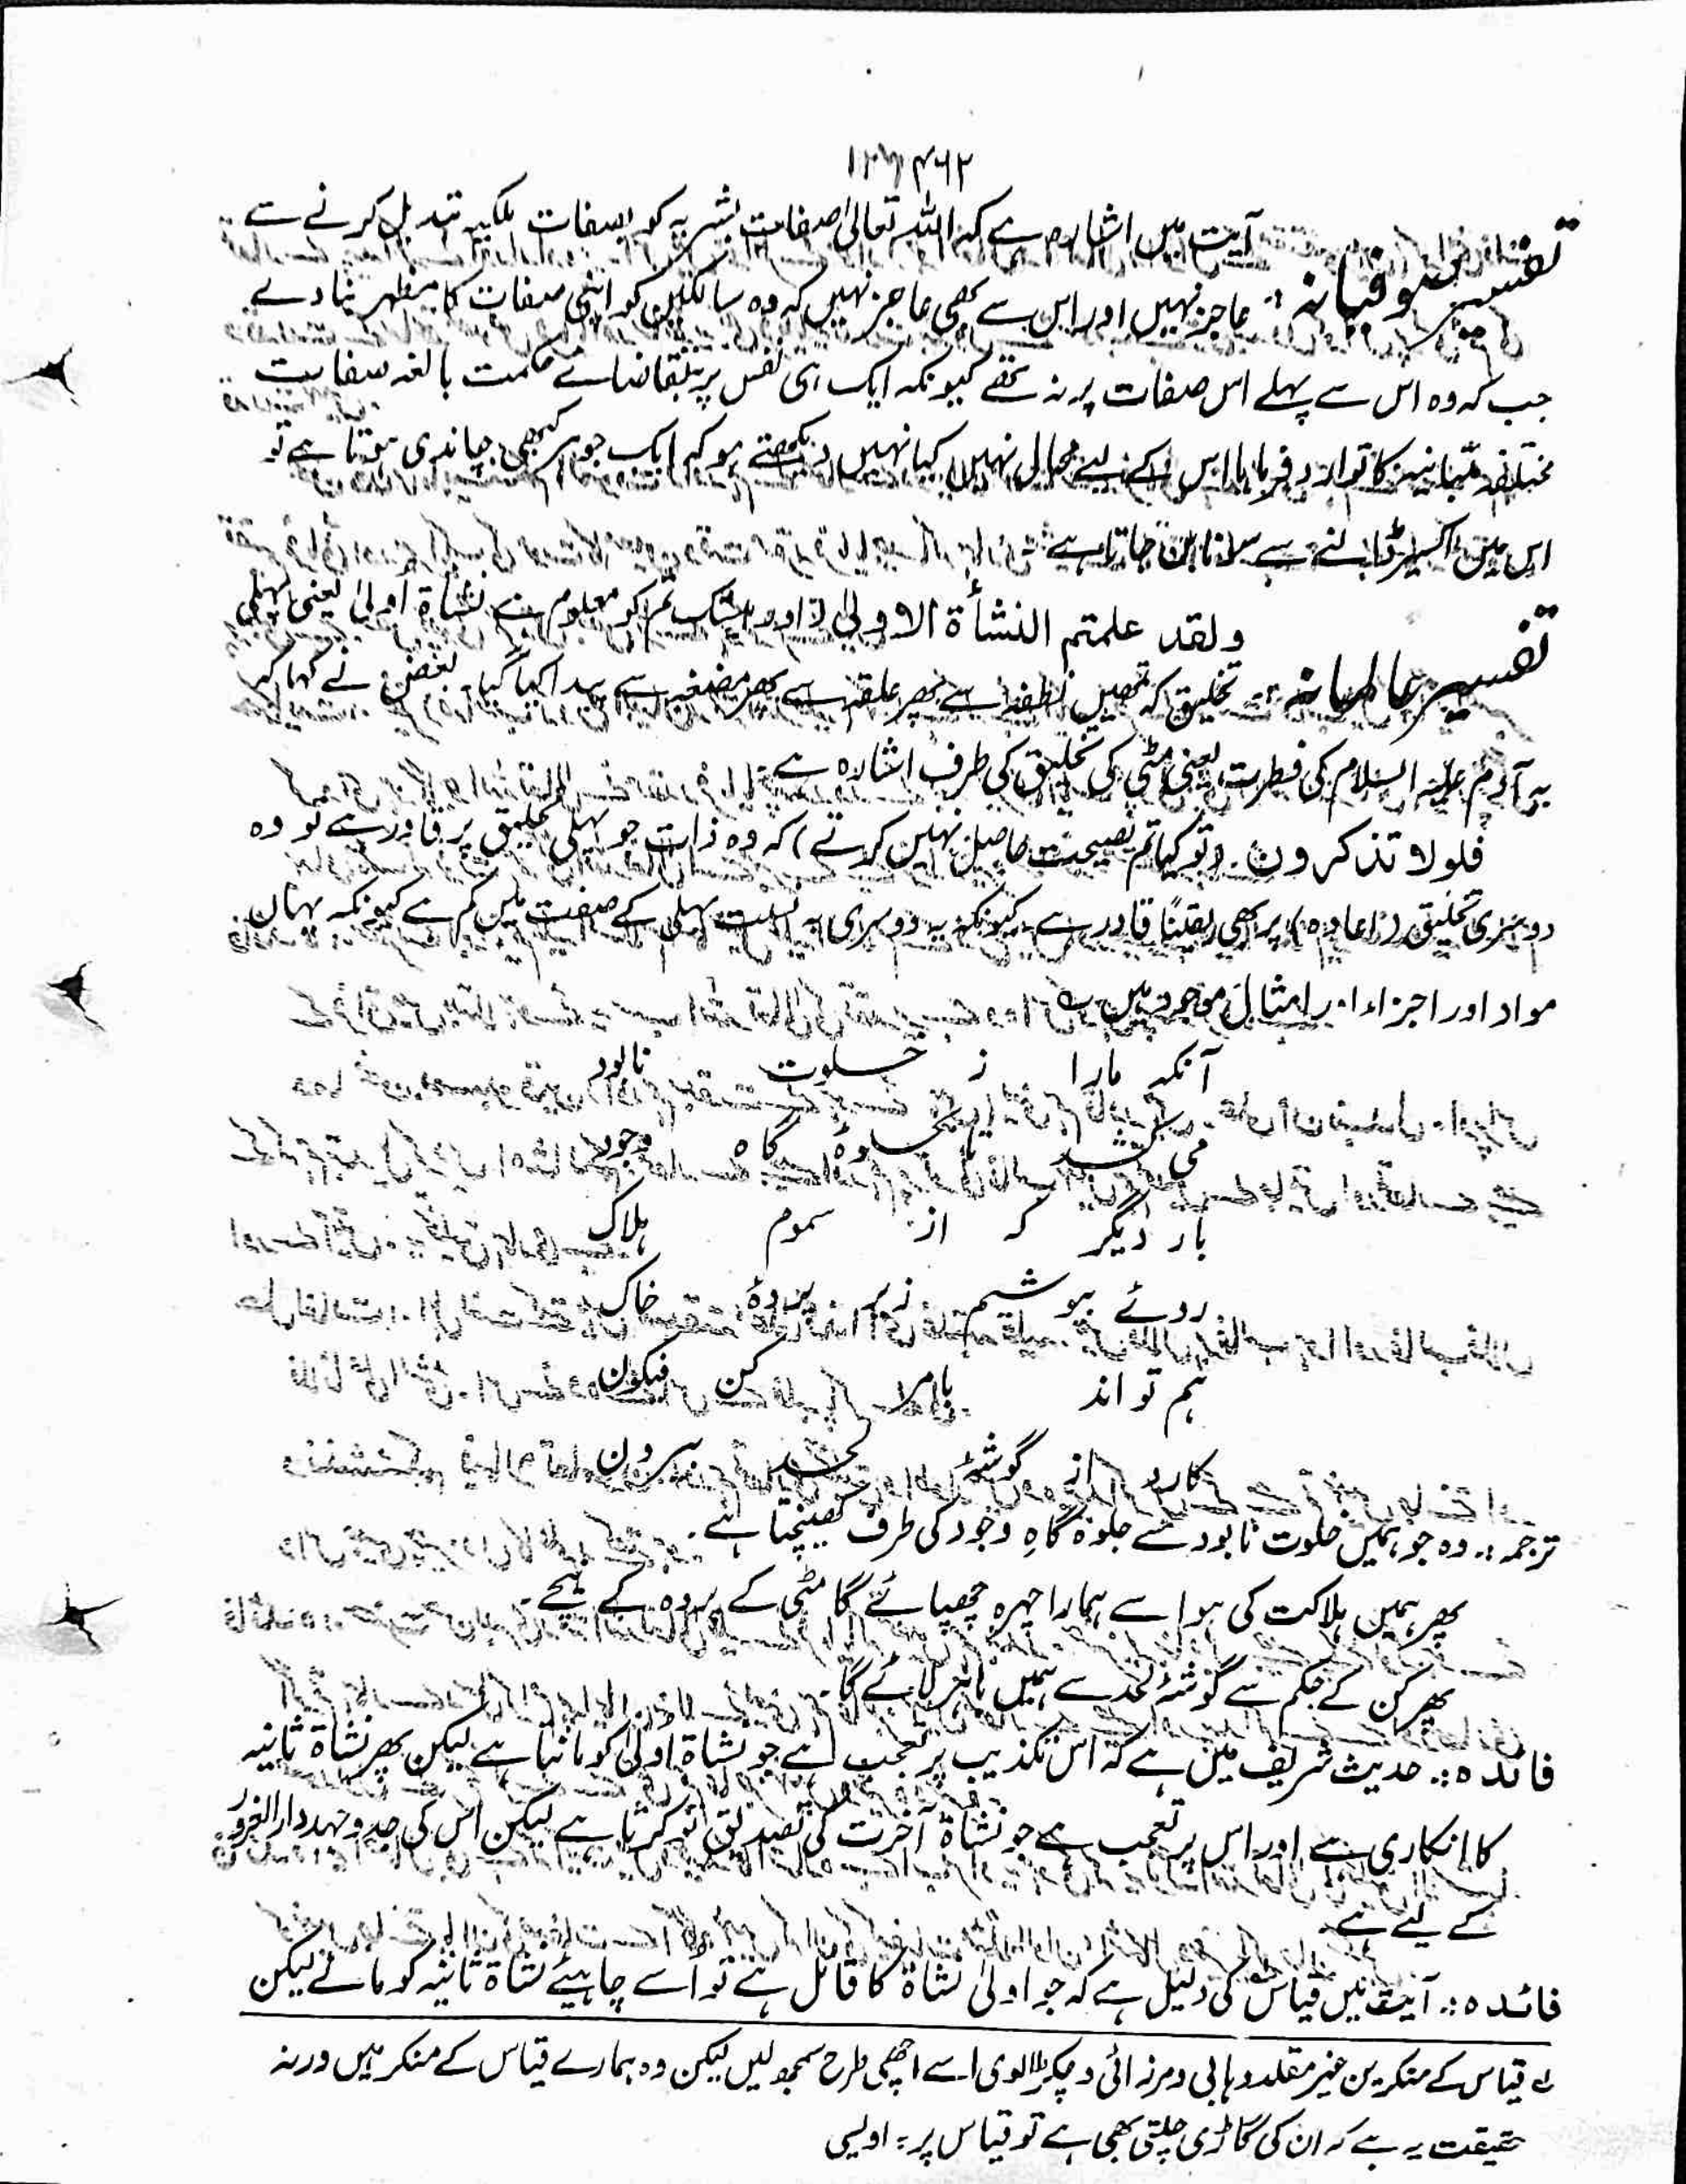 ۴۶۲
تفسیر صوفیانہ :. آیت میں اشارہ ہے کہ اللہ تعالیٰ صفات بشریہ کو بصفات ملکیہ تبدیل کرنے سے
عاجز نہیں اور اس سے بھی عاجز نہیں کہ وہ سالکین کو اپنی صفات کا مظہر بنا دے
جب کہ وہ اس سے پہلے اس صفات پر نہ تھے کیونکہ ایک ہی نفس پر بتقاضائے حکمت بالغہ صفات
مختلفہ متباینہ کا توارد فرمایا اس کے لیے محال نہیں کیا نہیں دیکھتے ہو کہ ایک جوہر کبھی چاندی ہوتا ہے تو
اس میں اکسیر ڈالنے سے سونا بن جاتا ہے
تفسیر عالمانہ :. ولقد علمتم النشأة الاولیٰ (اور بیشک تم کو معلوم ہے نشاۃ اولیٰ یعنی پہلی
تخلیق کہ تمہیں نطفہ سے پھر علقہ سے پھر مضغہ سے پیدا کیا گیا۔ بعض نے کہا کہ
یہ آدم علیہ السلام کی فطرت یعنی مٹی کی تخلیق کی طرف اشارہ ہے
فلولا تذکرون۔ (تو کیا تم نصیحت حاصل نہیں کرتے) کہ وہ ذات جو پہلی تخلیق پر قادر ہے تو وہ
دوسری تخلیق (اعادہ) پر بھی یقیناً قادر ہے کیونکہ یہ دوسری بہ نسبت پہلی کے صفت میں کم ہے کیونکہ یہاں
مواد اور اجزاء اور امثال موجود ہیں
آنکہ مارا ز خلوت نابود
می کشد بجلوہ گاہ وجود
بار دیگر کہ از سموم ہلاک
روئے پوشیم زیر پردۂ خاک
ہم تواند بامر کن فیکون
کارد از گوشۂ لحد بیرون
ترجمہ :. وہ جو ہمیں خلوت نابود سے جلوہ گاہِ وجود کی طرف کھینچتا ہے۔
پھر ہمیں ہلاکت کی ہوا سے ہمارا چہرہ چھپائے گا مٹی کے پردہ کے نیچے۔
پھر کن کے حکم سے گوشۂ لحد سے ہمیں باہر لائے گا۔
فائدہ :. حدیث شریف میں ہے کہ اس تکذیب پر تعجب ہے جو نشاۃ اولیٰ کو مانتا ہے لیکن پھر نشاۃ ثانیہ
کا انکاری ہے اور اس پر تعجب ہے جو نشاۃ آخرت کی تصدیق تو کرتا ہے لیکن اس کی جدوجہد دارالغرور
کے لیے ہے۔
فائدہ :. آیت میں قیاس کی دلیل ہے کہ جو اولیٰ نشاۃ کا قائل ہے تو اُسے چاہیئے نشاۃ ثانیہ کو مانے لیکن
لے قیاس کے منکرین غیر مقلد وہابی و مرزائی و چکڑالوی اسے اچھی طرح سمجھ لیں لیکن وہ ہمارے قیاس کے منکر ہیں ورنہ
حقیقت یہ ہے کہ ان کی گاڑی چلتی بھی ہے تو قیاس پر ؛ اویسی